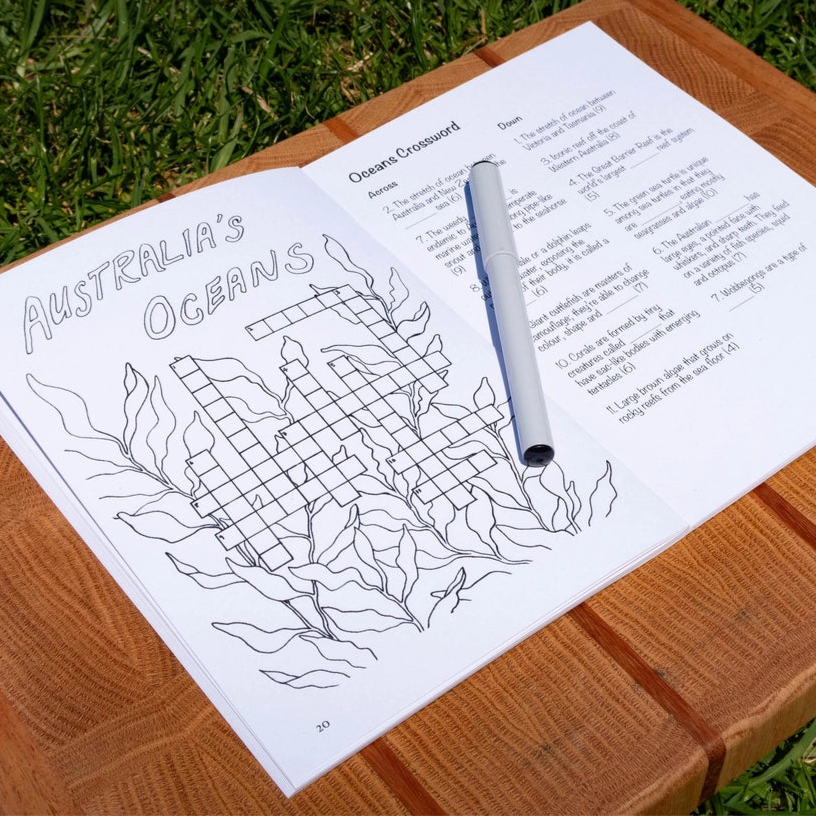 AUSTRALIA'S
OCEANS
20
Oceans Crossword
Across
2. The stretch of ocean between
Australia and New Z
sea (6)
7. The weedy is
endemic to temperate
marine ong pipe-like
snout to the seahorse
(9)
8. ale or a dolphin leaps
water, exposing the
of their body, it is called a
(6)
Giant cuttlefish are masters of
camouflage; they're able to change
colour, shape and ________ (7)
10. Corals are formed by tiny
creatures called ________ that
have sac-like bodies with emerging
tentacles (6)
Down
1. The stretch of ocean between
Victoria and Tasmania (9)
3. Iconic reef off the coast of
Western Australia (8)
4. The Great Barrier Reef is the
world's largest ________ reef system
(5)
5. The green sea turtle is unique
among sea turtles in that they
are ________, eating mostly
seagrasses and algae (10)
6. The Australian ________ has
large eyes, a pointed face with
whiskers, and sharp teeth. They feed
on a variety of fish species, squid
and octopus (7)
7. Wobbegongs are a type of
________ (5)
11. Large brown algae that grows on
rocky reefs from the sea floor (4)